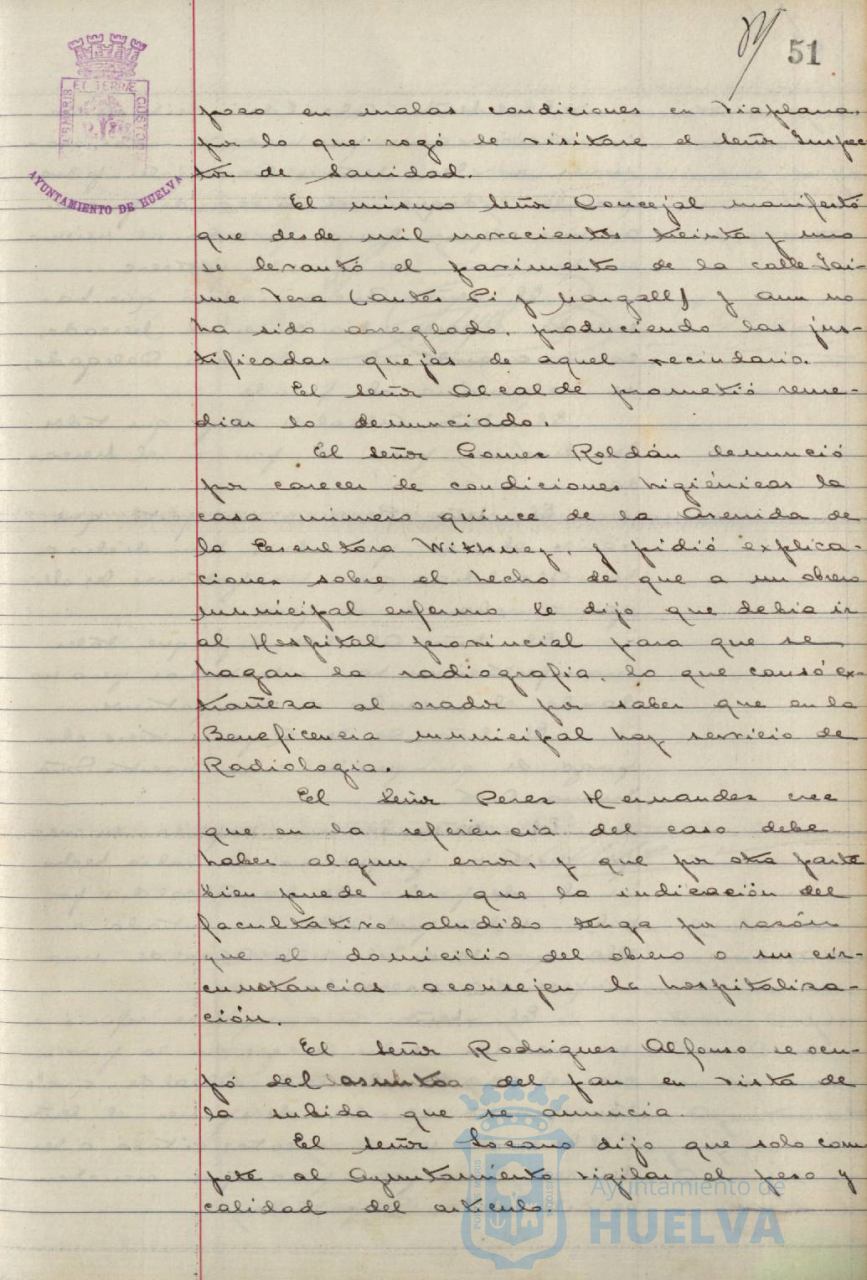 51
EL TERRÆ
CUSTODIA
AYUNTAMIENTO DE HUELVA
pozo en malas condiciones en Viaplana,
por lo que rogó le visitase el Señor Inspec
tor de Sanidad.
El mismo Señor Concejal manifestó
que desde mil novecientos treinta y uno
se levantó el pavimento de la calle Jai-
me Vera (antes Pi y Margall) y aun no
ha sido arreglado, produciendo las jus-
tificadas quejas de aquel vecindario.
El Señor Alcalde prometió reme-
diar lo denunciado.
El Señor Gomez Roldán denunció
por carecer de condiciones higiénicas la
casa número quince de la Avenida de
la Escultora Withney, y pidió explica-
ciones sobre el hecho de que a un obrero
municipal enfermo le dijo que debia ir
al Hospital provincial para que se
hagan la radiografia, lo que causó ex-
trañeza al orador por saber que en la
Beneficencia municipal hay servicio de
Radiologia.
El Señor Perez Hernandez cree
que en la referencia del caso debe
haber algun error, y que por otra parte
bien puede ser que la indicación del
facultativo aludido tenga por razón
que el domicilio del obrero o sus cir-
cunstancias aconsejen la hospitaliza-
ción.
El Señor Rodriguez Alfonso se ocu-
pó del asunto del pan en vista de
la subida que se anuncia.
El Señor Lozano dijo que solo com
pete al Ayuntamiento vigilar el peso y
calidad del artículo.
Ayuntamiento de
HUELVA